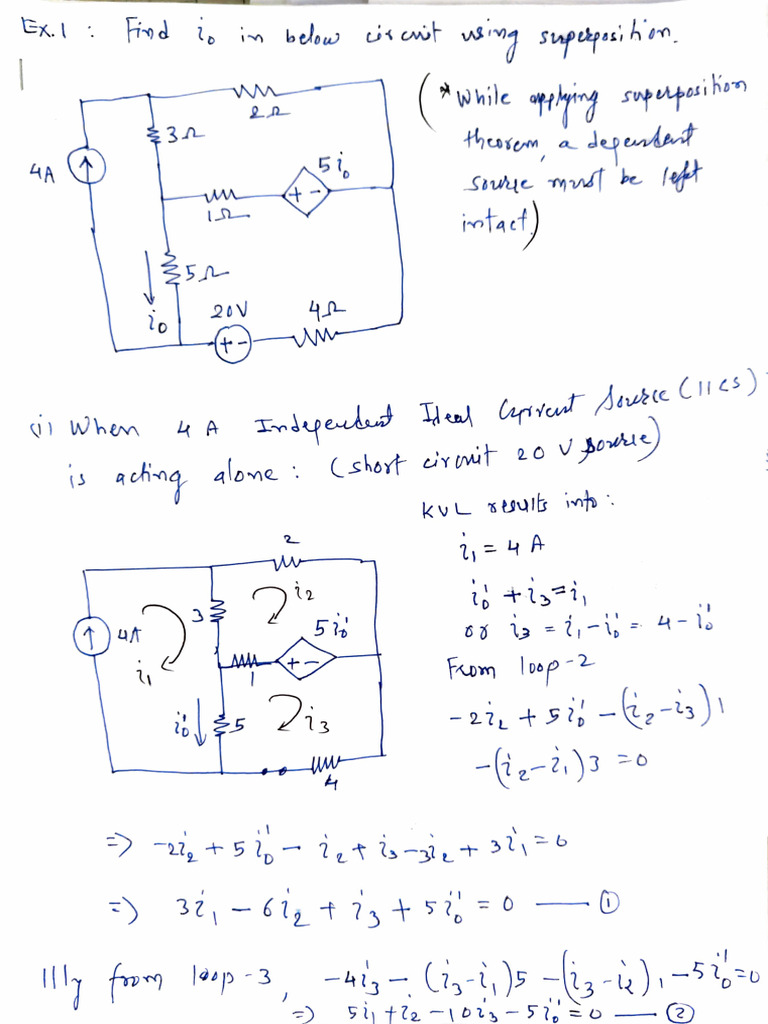 Ex.1 : Find i₀ in below circuit using superposition.
2Ω
(* While applying superposition
theorem, a dependent
source must be left
intact)
3Ω
4A
5i₀
+ -
1Ω
5Ω
i₀
20V
4Ω
+ -
(i) When 4 A Independent Ideal Current Source (IICS)
is acting alone : (short circuit 20 V source)
KVL results into :
i₁ = 4 A
i₀' + i₃ = i₁
or i₃ = i₁ - i₀' = 4 - i₀'
From loop-2
-2i₂ + 5i₀' - (i₂ - i₃) 1
- (i₂ - i₁) 3 = 0
2
i₂
3
4A
i₁
5i₀'
+ -
1
i₀'
5
i₃
4
=> -2i₂ + 5i₀' - i₂ + i₃ - 3i₂ + 3i₁ = 0
=> 3i₁ - 6i₂ + i₃ + 5i₀' = 0 — ①
Illly from loop-3, -4i₃ - (i₃ - i₁)5 - (i₃ - i₂)1 - 5i₀' = 0
=> 5i₁ + i₂ - 10i₃ - 5i₀' = 0 — ②